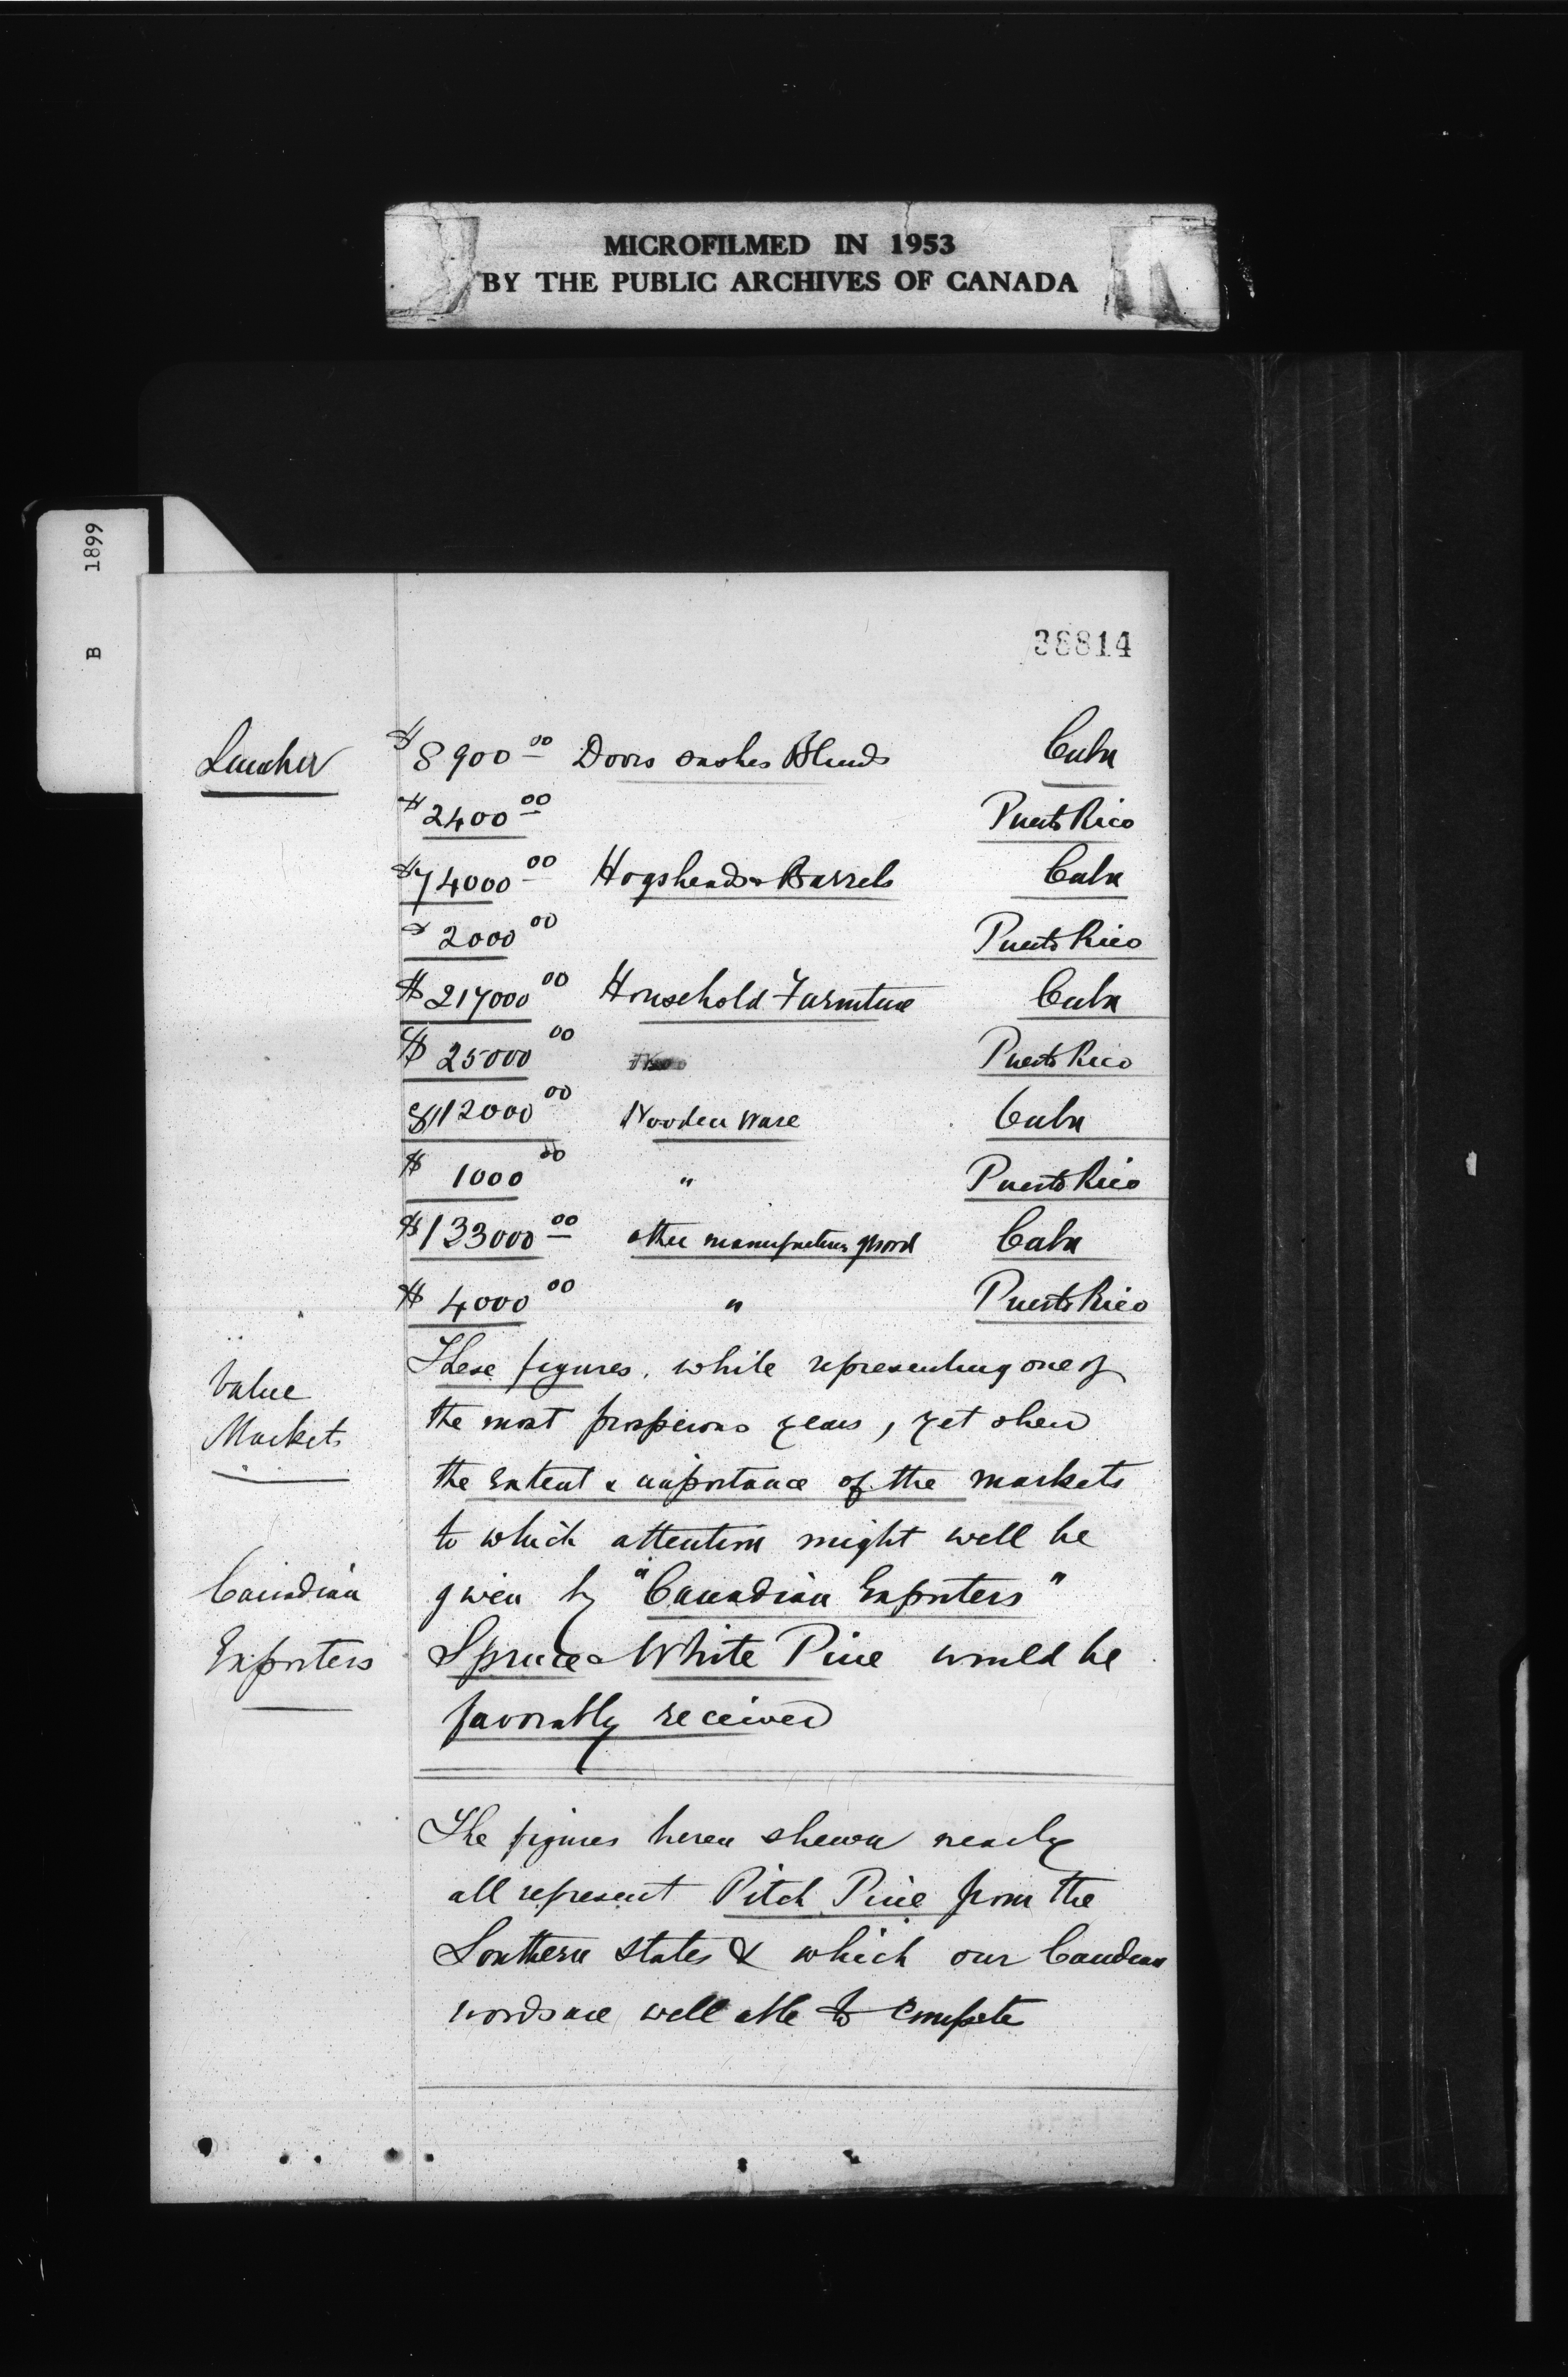 MICROFILMED IN 1953
BY THE PUBLIC ARCHIVES OF CANADA
B 1899
38814
Lumber $8900 00 Doors sashes Blinds Cuba
$2400 00 Puerto Rico
$74000 00 Hogsheads & Barrels Cuba
$2000 00 Puerto Rico
$217000 00 Household Furniture Cuba
$25000 00 Puerto Rico
$112000 00 Wooden Ware Cuba
$1000 00 " Puerto Rico
$133000 00 other manufactures of wood Cuba
$4000 00 " Puerto Rico
These figures, while representing one of
Value the most prosperous years, yet shew
Markets the extent & importance of the markets
to which attention might well be
Canadian given by "Canadian Exporters"
Exporters Spruce & White Pine would be
favorably received
The figures herein shewn nearly
all represent Pitch Pine from the
Southern States & which our Canadian
woods are well able to compete